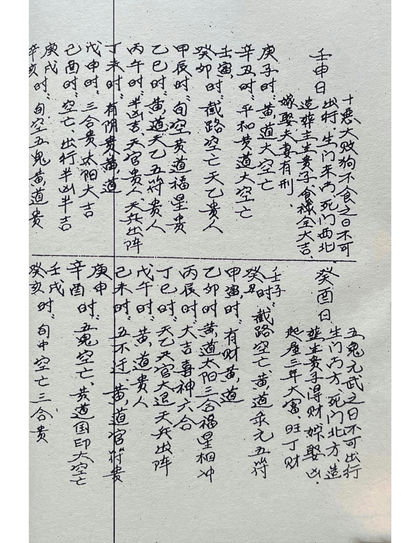 壬申日
十恶大败狗不食之日不可
出行 生门东南 死门西北
造葬主生贵子食禄全大吉、
嫁娶夫妻有刑、
庚子时、黄道大空亡
辛丑时、平和黄道大空亡
壬寅时、
癸卯时、截路空亡天乙贵人
甲辰时、旬空黄道福星贵
乙巳时、黄道天乙五符贵人
丙午时、半吉天官贵人天兵出阵
丁未时、有阴贵黄道
戊申时、三合贵太阳大吉
己酉时、空亡出行半凶半吉
庚戌
辛亥时、旬空五鬼黄道贵
癸酉日
五鬼元武之日不可出行
生门南方、死门北方、造
葬主贵子得财嫁娶凶、
起屋三年大富旺丁财
壬子
癸丑时、截路空亡、黄道乘元五符
甲寅时、有财黄道
乙卯时、黄道太阳三合福星相冲
丙辰时、大吉寿神六合
丁巳时、天乙天官大退天兵出阵
戊午时、黄道贵人
己未时、五不过黄道官符贵
庚申
辛酉时、五鬼空亡、黄道国印大空亡
壬戌
癸亥时、旬中空亡三合贵